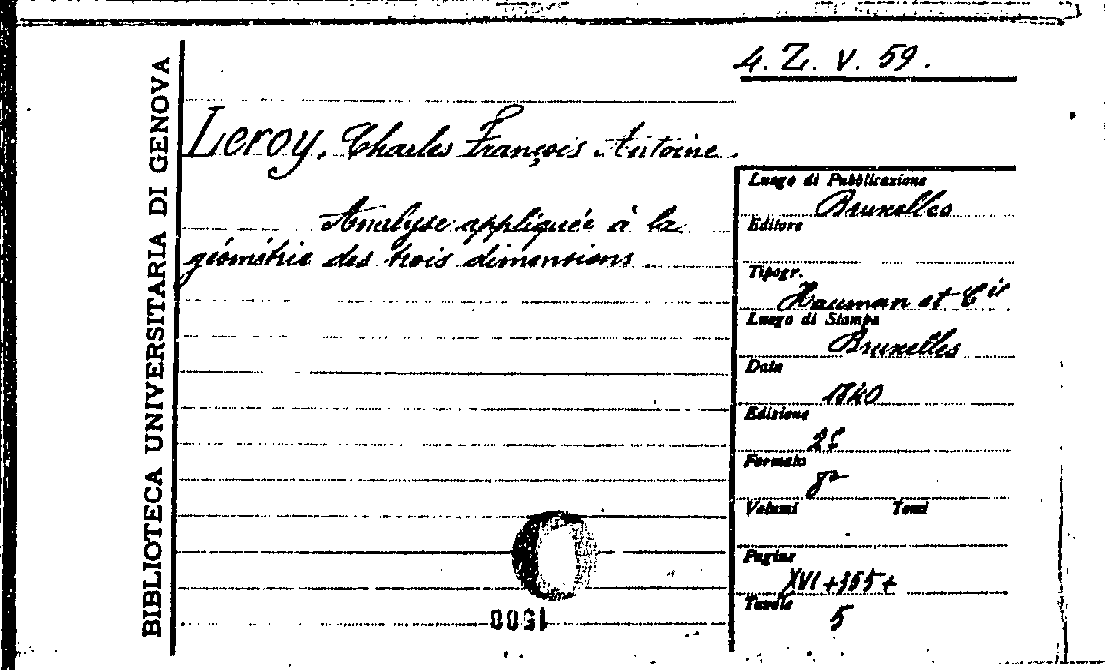 4. Z. V. 59.
BIBLIOTECA UNIVERSITARIA DI GENOVA
Leroy, Charles François Antoine.
Analyse appliquée à la
géométrie des trois dimensions
Luogo di Pubblicazione
Bruxelles
Editore
Tipogr.
Hauman et Cie
Luogo di Stampa
Bruxelles
Data
1840
Edizione
Formato
8º
Volumi Tomi
Pagine
XVI+365+
Tavole
5